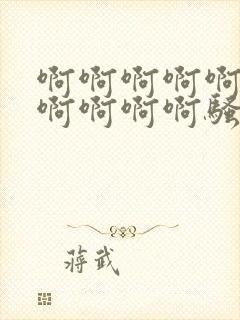 啊啊啊啊啊
啊啊啊啊骚
蒋武